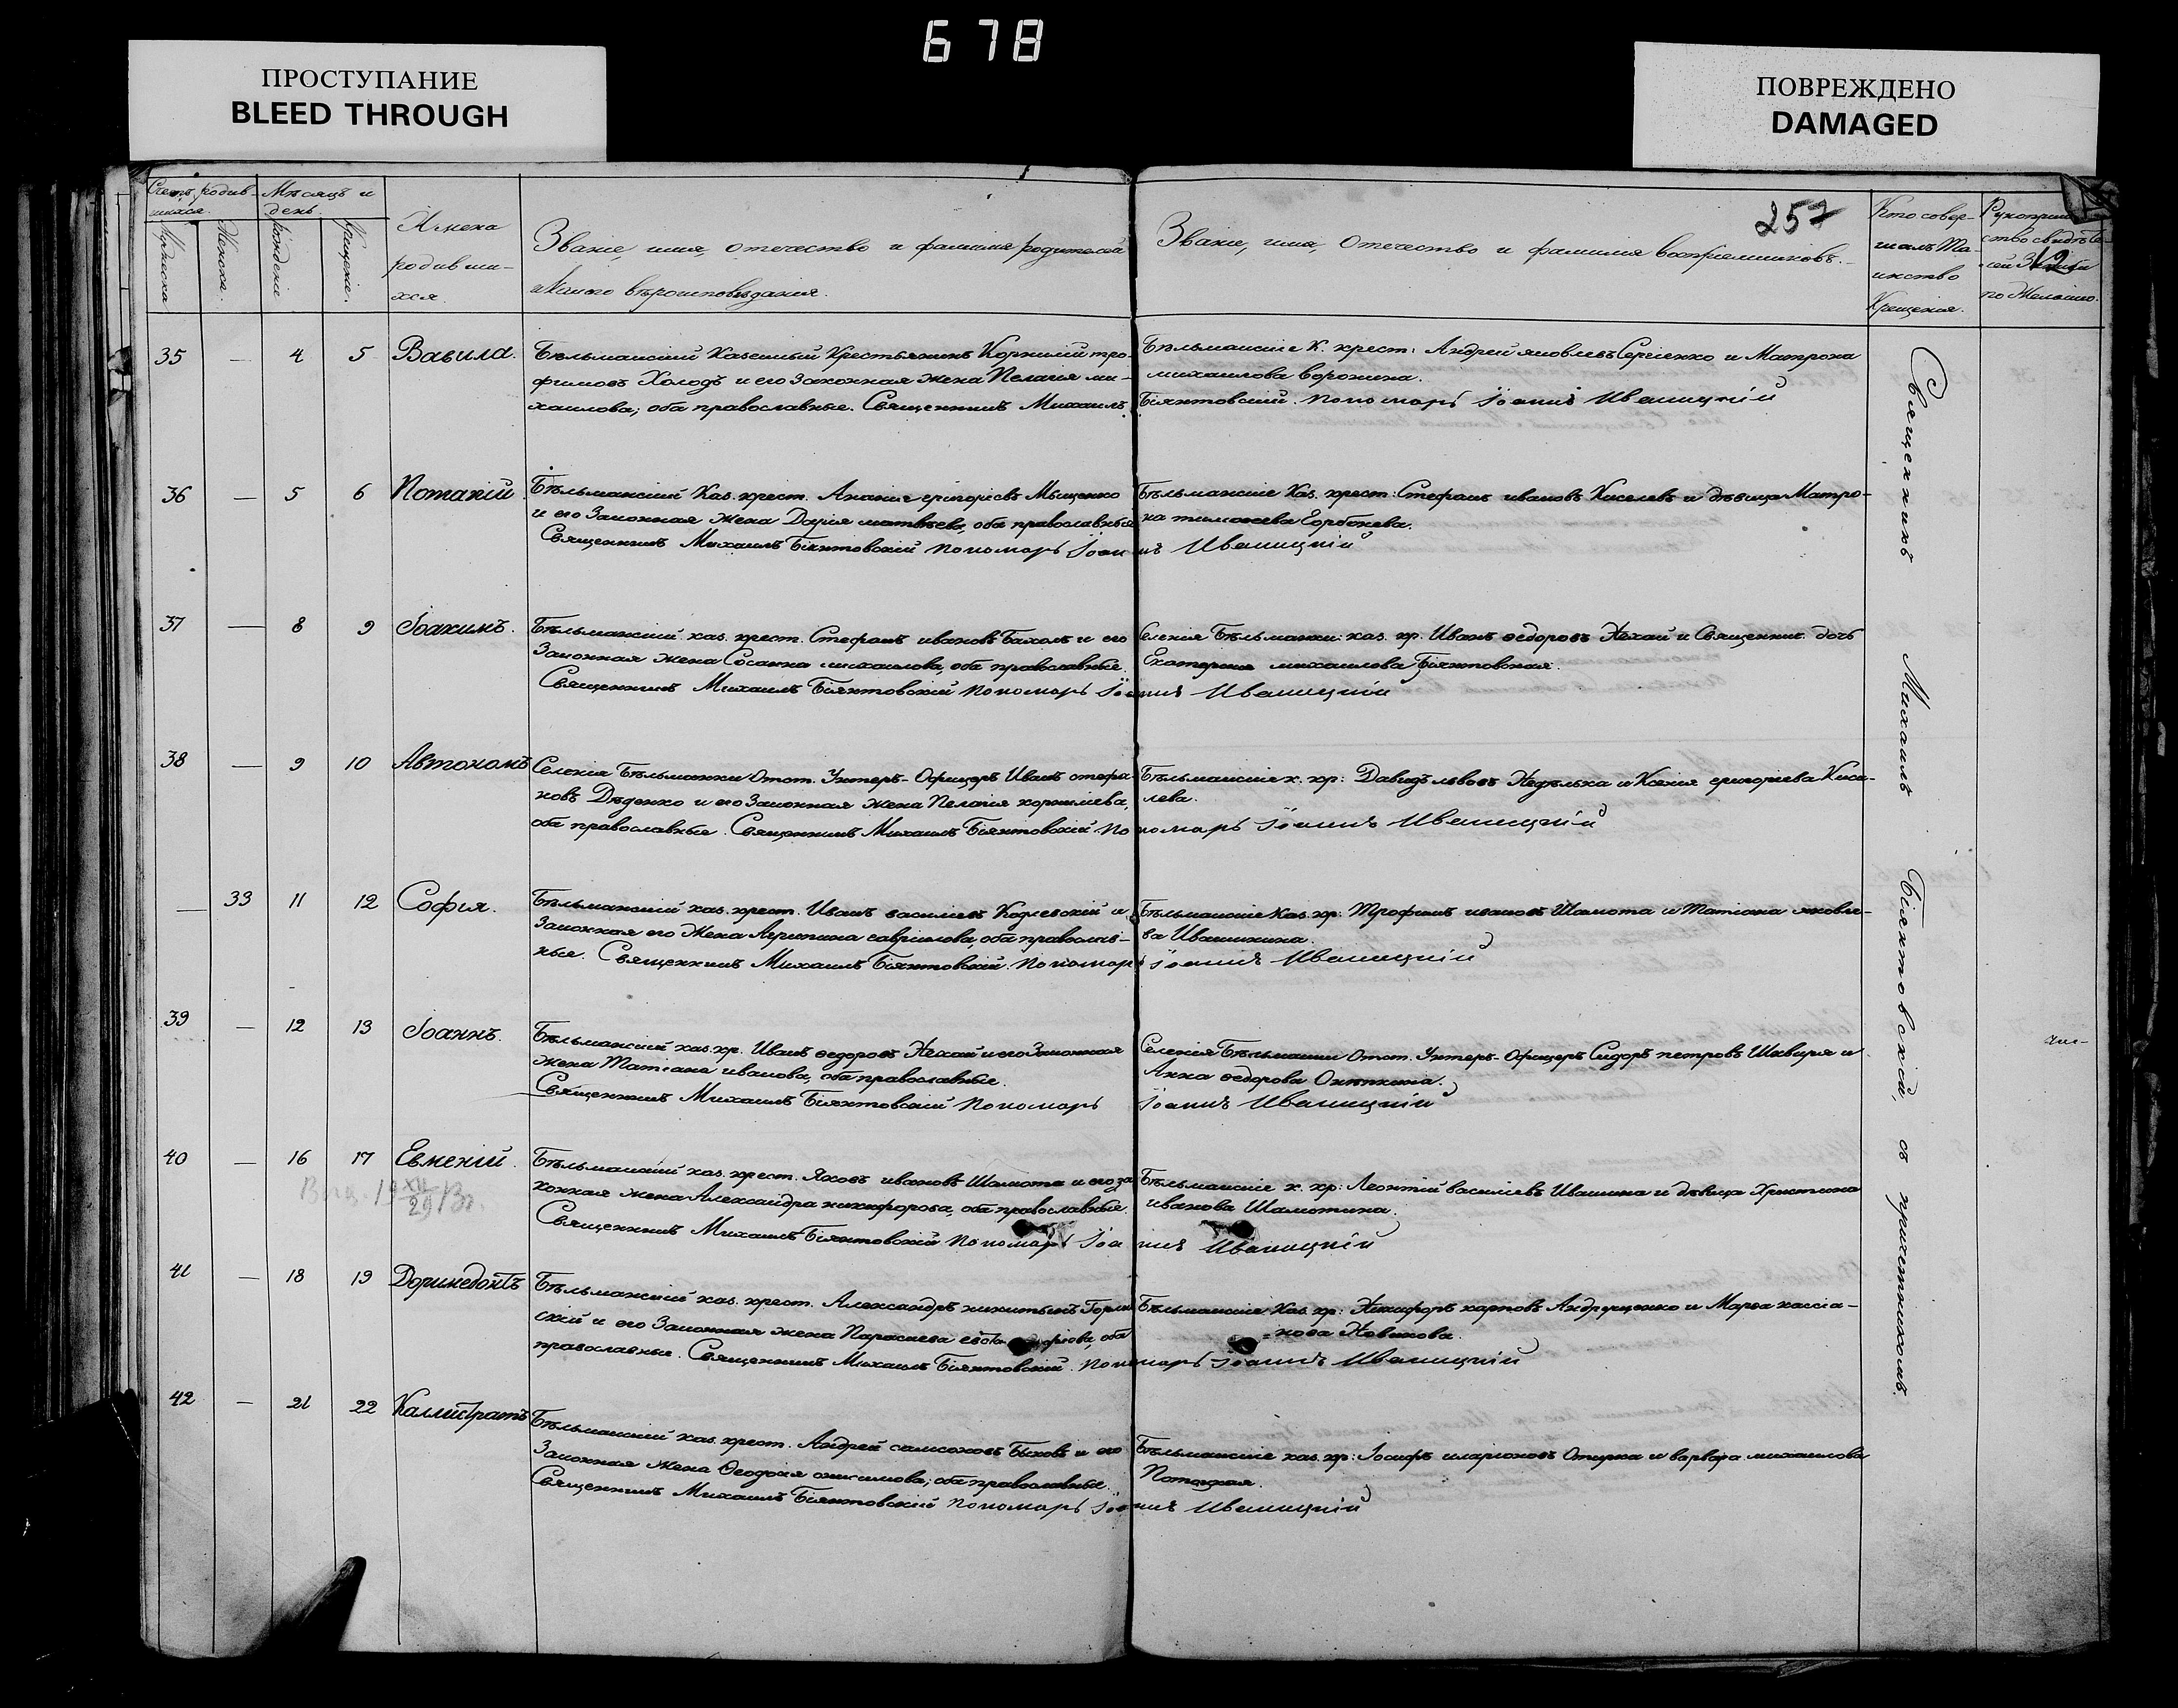 678
ПРОСТУПАНИЕ
BLEED THROUGH
ПОВРЕЖДЕНО
DAMAGED
Счетъ родив-
шихся.
Мѣсяцъ и
день.
Мужеска
Женска.
рожденіе
Крещеніе.
Имена
родивши-
хся.
Званіе, имя, отечество и фамилія родителей
и какого вѣроисповѣданія.
257
Званіе, имя, Отечество и фамилія воспріемниковъ.
Кто совер-
шалъ Та-
инство
Крещенія.
по Желанію.
35 — 4 5 Вавила.
Бѣльманскій Казенный Крестьянинъ Корнилій тро-
фимовъ Холодъ и его Законная жена Пелагія ми-
хаилова; оба православные. Священникъ Михаилъ
Бѣльманскіе К. крест: Андрей яковлевъ Сергіенко и Матрона
михаилова Воронина.
Біянтовскій. Пономарь Іоаннъ Иваницкій
36 — 5 6 Потапій
Бѣльманскій Каз. крест. Ананія григоріевъ Мищенко
и его Законная жена Дарія матвѣева, оба православные
Священникъ Михаилъ Біянтовскій Пономарь Іоан
Бѣльманскіе Каз. крест: Стефанъ ивановъ Киселевъ и дѣвица Матро-
на тимоѳеева Горбонева.
нъ Иваницкій
37 — 8 9 Іоакимъ.
Бѣльманскій каз. крест. Стефанъ ивановъ Бахолъ и его
Законная жена Сосанна михаилова, оба православные.
Священникъ Михаилъ Біянтовскій Пономарь Іоа
Селенія Бѣльманки: каз. кр. Иванъ ѳедоровъ Нехай и Священник. дочь
Екатерина михаилова Біянтовская.
ннъ Иваницкій
38 — 9 10 Автономъ
Селенія Бѣльманки Отст. Унтеръ-Офицеръ Иванъ стефа-
новъ Дѣденко и его Законная жена Пелагія корниліева,
оба православные. Священникъ Михаилъ Біянтовскій По
Бѣльманскіе к. кр: Давидъ львовъ Недѣлька и Ксенія григоріева Кисе-
лева.
номарь Іоаннъ Иваницкій
— 33 11 12 Софія.
Бѣльманскій каз. крест. Иванъ василіевъ Кодлевскій и
Законная его жена Агрипина гавріилова, оба православ-
ные. Священникъ Михаилъ Біянтовскій. Пономарь
Бѣльманскіе Каз. кр: Трофимъ ивановъ Шамота и Татіана яковле-
ва Ивашинина.
Іоаннъ Иваницкій
39 — 12 13 Іоаннъ.
Бѣльманскій каз. кр. Иванъ ѳедоровъ Нехай и его Законная
жена Татіана иванова, оба православные.
Священникъ Михаилъ Біянтовскій Пономарь
Селенія Бѣльманки Отст. Унтеръ-Офицеръ Сидоръ петровъ Шквиря и
Анна ѳедорова Онѣпкина.
Іоаннъ Иваницкій
40 — 16 17 Евменій.
Бѣльманскій каз. крест. Яковъ ивановъ Шамота и его за
конная жена Александра никифорова, оба православные.
Священникъ Михаилъ Біянтовскій Пономарь Іоа
Бѣльманскіе к. кр: Леонтій василіевъ Ивашина и дѣвица Христина
иванова Шамотина.
ннъ Иваницкій
41 — 18 19 Доримедонтъ
Бѣльманскій каз. крест. Александръ никитинъ Горлин
скій и его Законная жена Параскева оба
православные. Священникъ Михаилъ Біянтовскій. Поно
Бѣльманскіе Каз. кр: Никифоръ карповъ Андрущенко и Марѳа кассіа-
нова Новикова.
марь Іоаннъ Иваницкій
42 — 21 22 Каллистратъ
Бѣльманскій каз. крест. Андрей самсоновъ Быковъ и его
Законная жена Ѳеодосія онисимова; оба православные.
Священникъ Михаилъ Біянтовскій Пономарь Іоа
Бѣльманскіе каз. кр: Іосифъ иларіоновъ Отирка и варвара михаилова
Потоцкая.
ннъ Иваницкій
Священникъ Михаилъ Біянтовскій, съ причетникомъ.